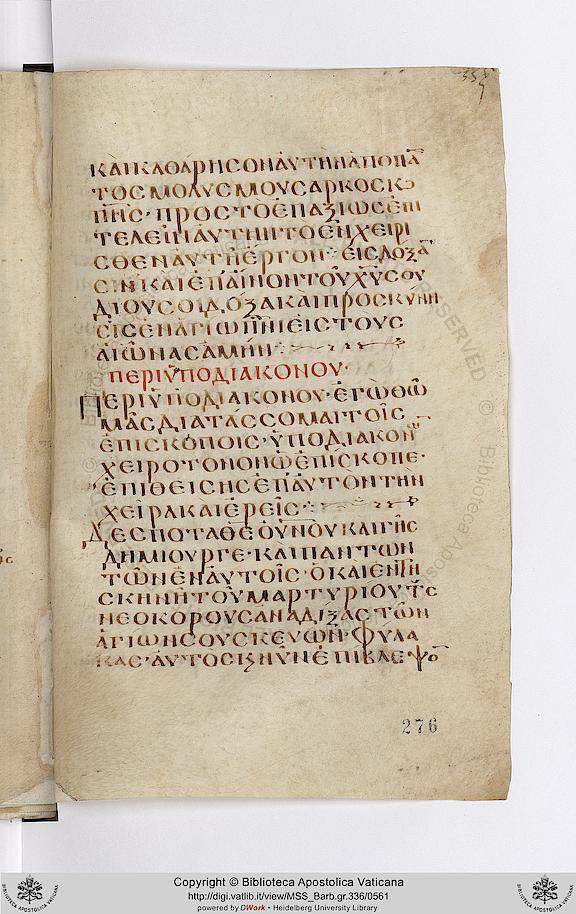 ΚΑΙΚΑΘΑΡΗСΟΝΑΥΤΗΝΑΠΟΠΑ̅
ΤΟСΜΟΛΥСΜΟΥСΑΡΚΟСΚ,
ΠΝ̅С·ΠΡΟСΤΟΕΠΑΞΙΩСΕΠΙ
ΤΕΛΕΙΝΑΥΤΗΝΤΟΕΝΧΕΙΡΙ
СΘΕΝΑΥΤΗΕΡΓΟΝ· ΕΙСΔΟΞΑ̅
С̅Ν̅ΚΑΙΕΠΑΙΝΟΝΤΟΥΧ̅Υ̅СΟΥ
ΔΙΟΥСΟΙΔΟΞΑΚΑΙΠΡΟСΚΥΝΗ
СΙССΕΝΑΓΙΩΠΝ̅ΙΕΙСΤΟΥС
ΑΙΩΝΑСΑΜΗΝ
ΠΕΡΙΥΠΟΔΙΑΚΟΝΟΥ·
ΠΕΡΙΥΠΟΔΙΑΚΟΝΟΥ·ΕΓΩΘΩ
ΜΑСΔΙΑΤΑССΟΜΑΙΤΟΙС
ΕΠΙСΚΟΠΟΙС·ΥΠΟΔΙΑΚΟΝ
ΧΕΙΡΟΤΟΝΟΝΩΕΠΙСΚΟΠΕ·
ΕΠΙΘΕΙСΗСΕΠΑΥΤΟΝΤΗΝ
ΧΕΙΡΑΚΑΙΕΡΕΙС·
ΔΕСΠΟΤΑΘΕΟΥΝΟΥΚΑΙΓΗС
ΔΗΜΙΟΥΡΓΕ·ΚΑΙΠΑΝΤΩΝ
ΤΩΝΕΝΑΥΤΟΙС·ΟΚΑΙΕΝΤΗ
СΚΗΝΗΤΟΥΜΑΡΤΥΡΙΟΥΤΣ
ΝΕΟΚΟΡΟΥСΑΝΑΔΙΞΑСΤΩΝ
ΑΓΙΩΝСΟΥСΚΕΥΩΝ·ΦΥΛΑ
ΚΑС·ΑΥΤΟСΚ,ΝΥΝΕΠΙΒΛΕΨΟ̅
276
RESERVED
©
Biblioteca Apostolica
Copyright © Biblioteca Apostolica Vaticana
http://digi.vatlib.it/view/MSS_Barb.gr.336/0561
powered by DWork • Heidelberg University Library